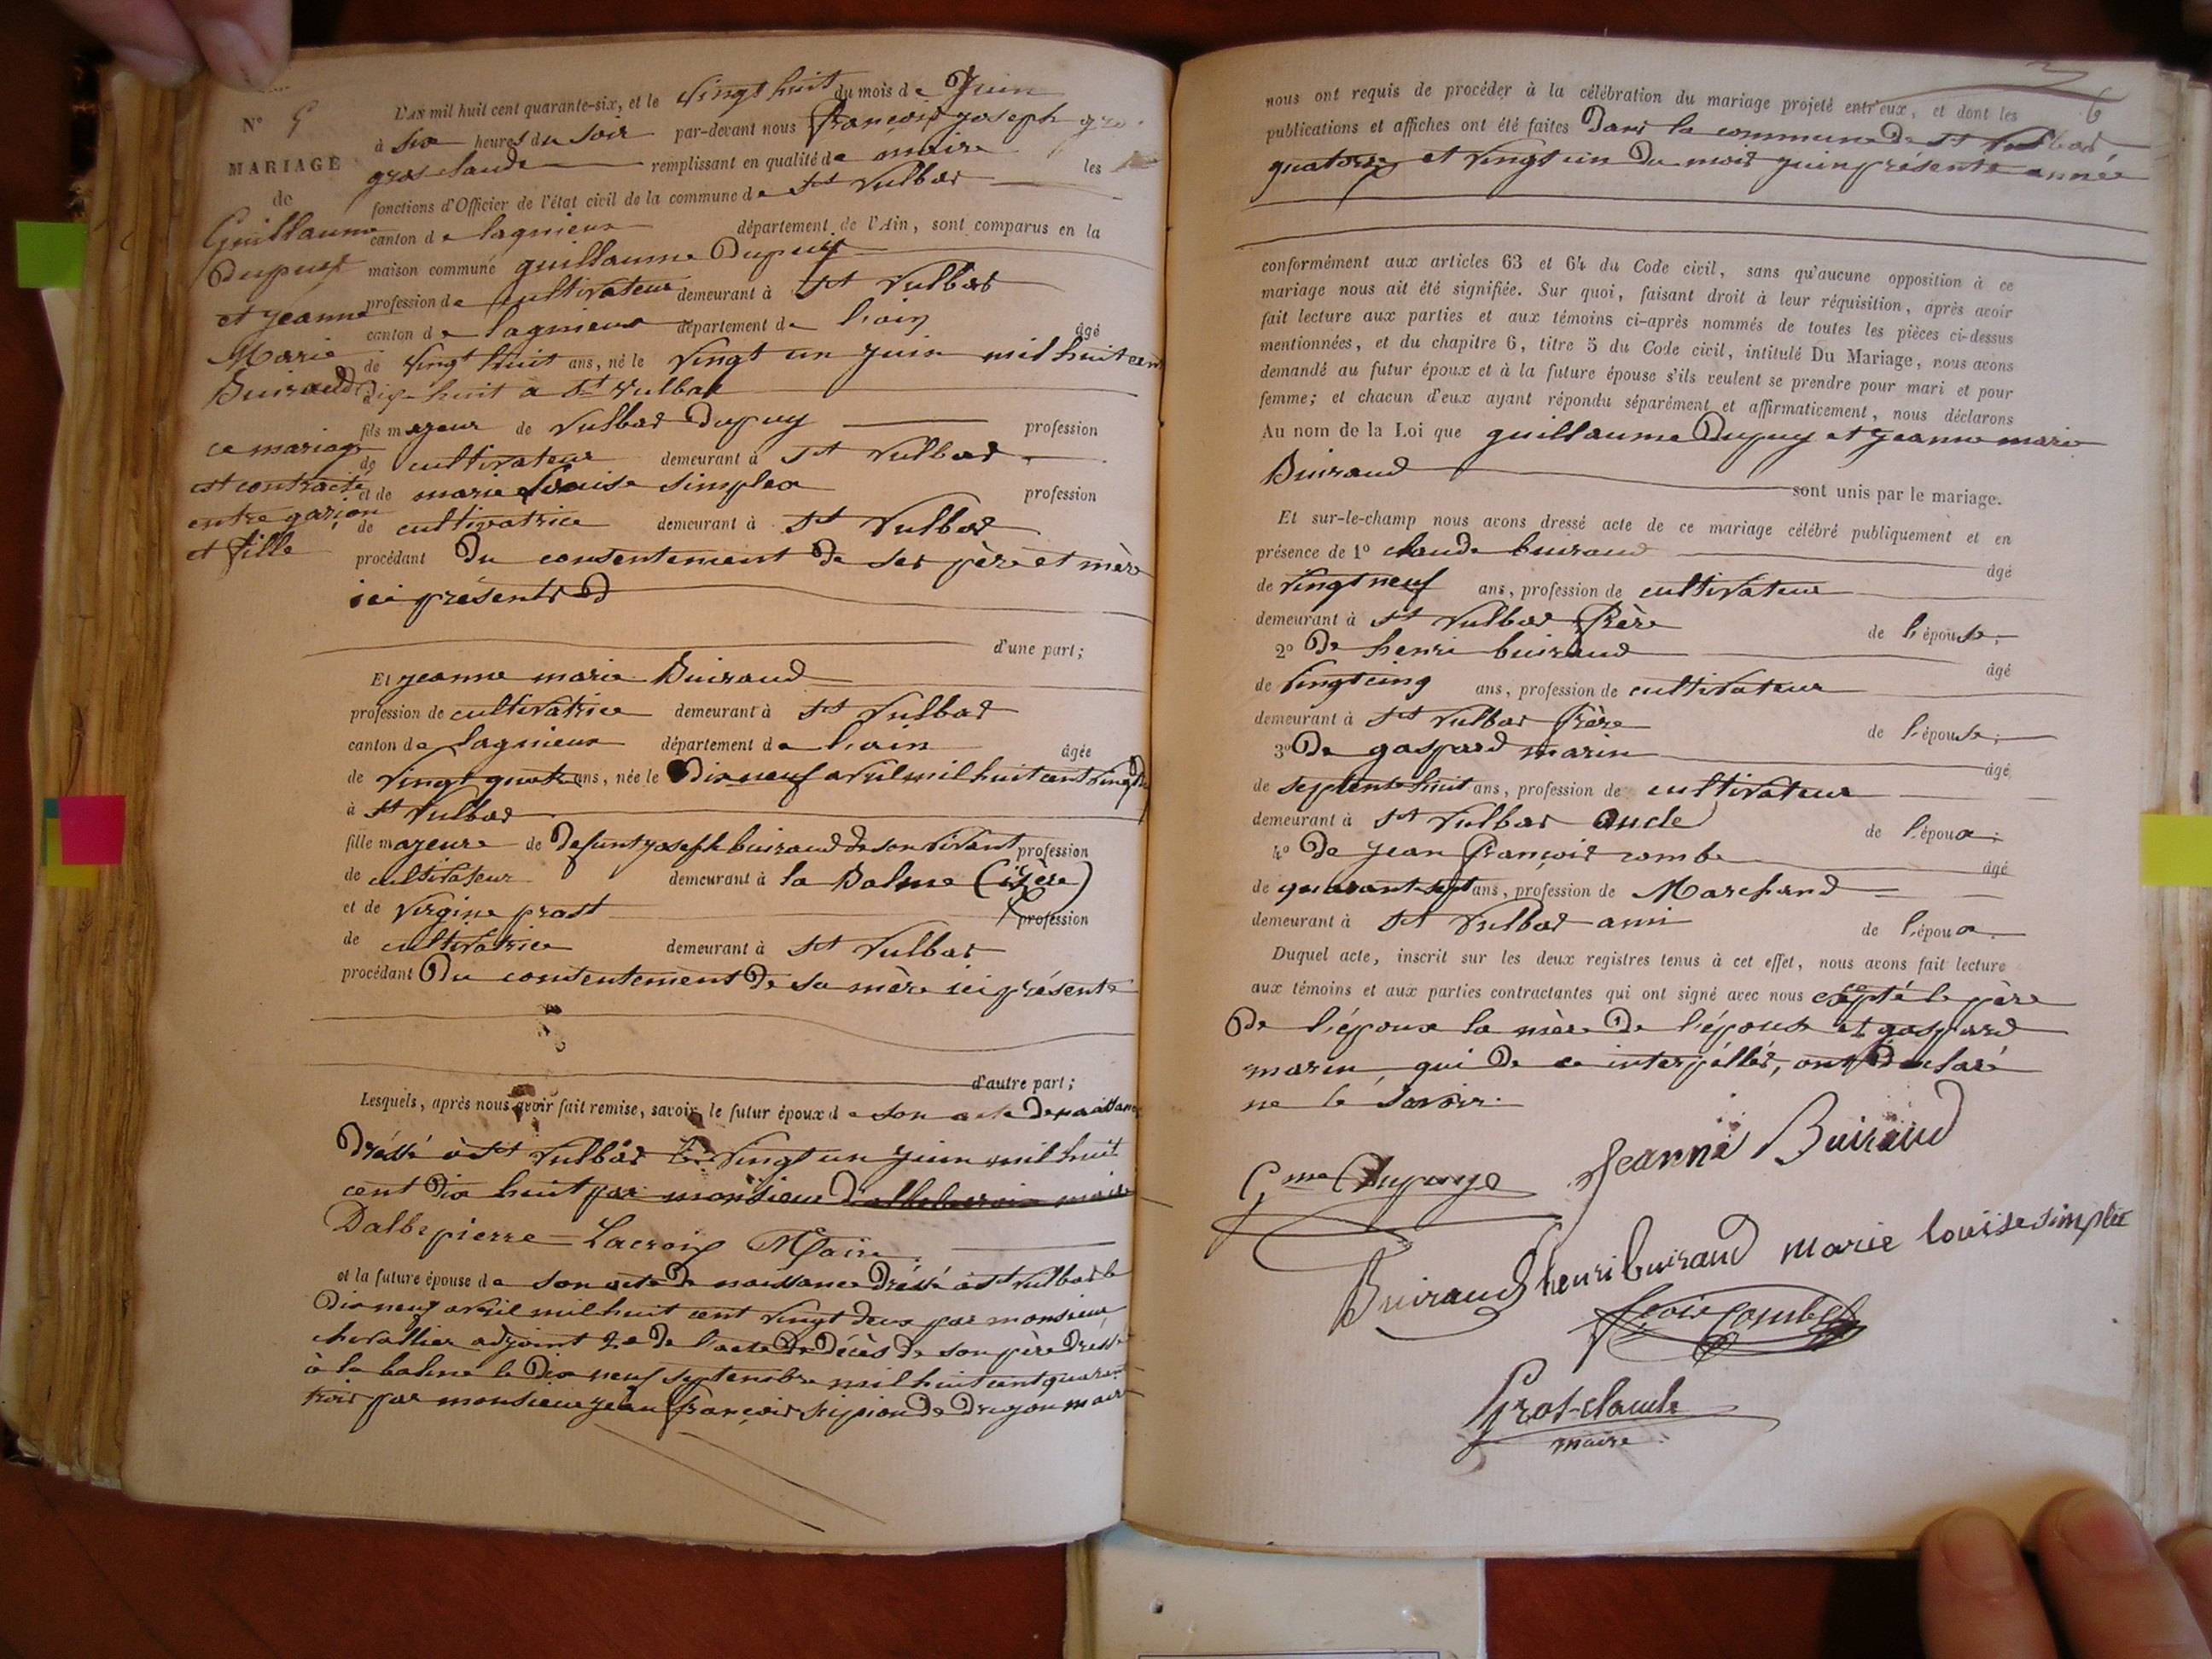 N° 5
MARIAGE
de
Guillaume
Dupuy
et jeanne
Marie
Buiraud
ce mariage
est contracté
entre garçon
et fille
L'AN mil huit cent quarante-six, et le vingt huit du mois de Juin
à six heures du soir par-devant nous françois joseph gro
gros claude remplissant en qualité de maire les
fonctions d'Officier de l'état civil de la commune de st Vulbas
canton de lagnieux département de l'Ain, sont comparus en la
maison commune guillaume Dupuy
profession de cultivateur demeurant à st Vulbas
canton de lagnieux département de l'ain âgé
de vingt huit ans, né le vingt un juin mil huit cent
dix-huit a st Vulbas
fils majeur de Vulbas Dupuy profession
de cultivateur demeurant à st Vulbas
et de marie Louise simplex profession
de cultivatrice demeurant à st Vulbas
procédant Du consentement de ses père et mère
ici présents
d'une part;
Et jeanne marie Buiraud
profession de cultivatrice demeurant à st Vulbas
canton de lagnieux département de l'ain âgée
de vingt quatre ans, née le Dix neuf avril mil huit cent vingt
à st Vulbas
fille majeure de Defunt joseph buiraud de son vivant profession
de cultivateur demeurant à la Balme (isère)
et de Virgine prost profession
de cultivatrice demeurant à st Vulbas
procédant Du consentement De sa mère ici présente
d'autre part;
Lesquels, après nous avoir fait remise, savoir, le futur époux de son acte De naissance
Dréssé à st Vulbas le vingt un juin mil huit
cent Dix huit par monsieur maire
Dalbepierre=Lacroix Maire
et la future épouse de son acte De naissance Dréssé à st Vulbas le
Dix neuf avril mil huit cent vingt deux par monsieur
chevallier adjoint 2e De l'acte De Décès de son père Dréssé
à la balme le Dix neuf septembre mil huit cent quarante
trois par monsieur jean françois scipion de Drujon maire
nous ont requis de procéder à la célébration du mariage projeté entr'eux, et dont les
publications et affiches ont été faites Dans la commune De st Vulbas
quatorze et vingt un Du mois juin présente année
conformément aux articles 63 et 64 du Code civil, sans qu'aucune opposition à ce
mariage nous ait été signifiée. Sur quoi, faisant droit à leur réquisition, après avoir
fait lecture aux parties et aux témoins ci-après nommés de toutes les pièces ci-dessus
mentionnées, et du chapitre 6, titre 5 du Code civil, intitulé Du Mariage, nous avons
demandé au futur époux et à la future épouse s'ils veulent se prendre pour mari et pour
femme; et chacun d'eux ayant répondu séparément et affirmativement, nous déclarons
Au nom de la Loi que guillaume Dupuy et jeanne marie
Buiraud sont unis par le mariage.
Et sur-le-champ nous avons dressé acte de ce mariage célébré publiquement et en
présence de 1° claude buiraud âgé
de vingt neuf ans, profession de cultivateur
demeurant à st Vulbas frère de l'épouse;
2° De henri buiraud âgé
de vingt cinq ans, profession de cultivateur
demeurant à st Vulbas frère de l'épouse;
3° De gaspard marin âgé
de septente huit ans, profession de cultivateur
demeurant à st Vulbas oncle de l'époux;
4° De jean françois combe âgé
de quarante sept ans, profession de Marchand
demeurant à st Vulbas ami de l'époux
Duquel acte, inscrit sur les deux registres tenus à cet effet, nous avons fait lecture
aux témoins et aux parties contractantes qui ont signé avec nous excepté le père
De l'époux la mère De l'épouse et gaspard
marin qui De ce interpéllés, ont Déclaré
ne le savoir.
Gme Dupuy Jeanne Buiraud
Buiraud henri buiraud marie louise simplex
Combe
Gros-claude
maire